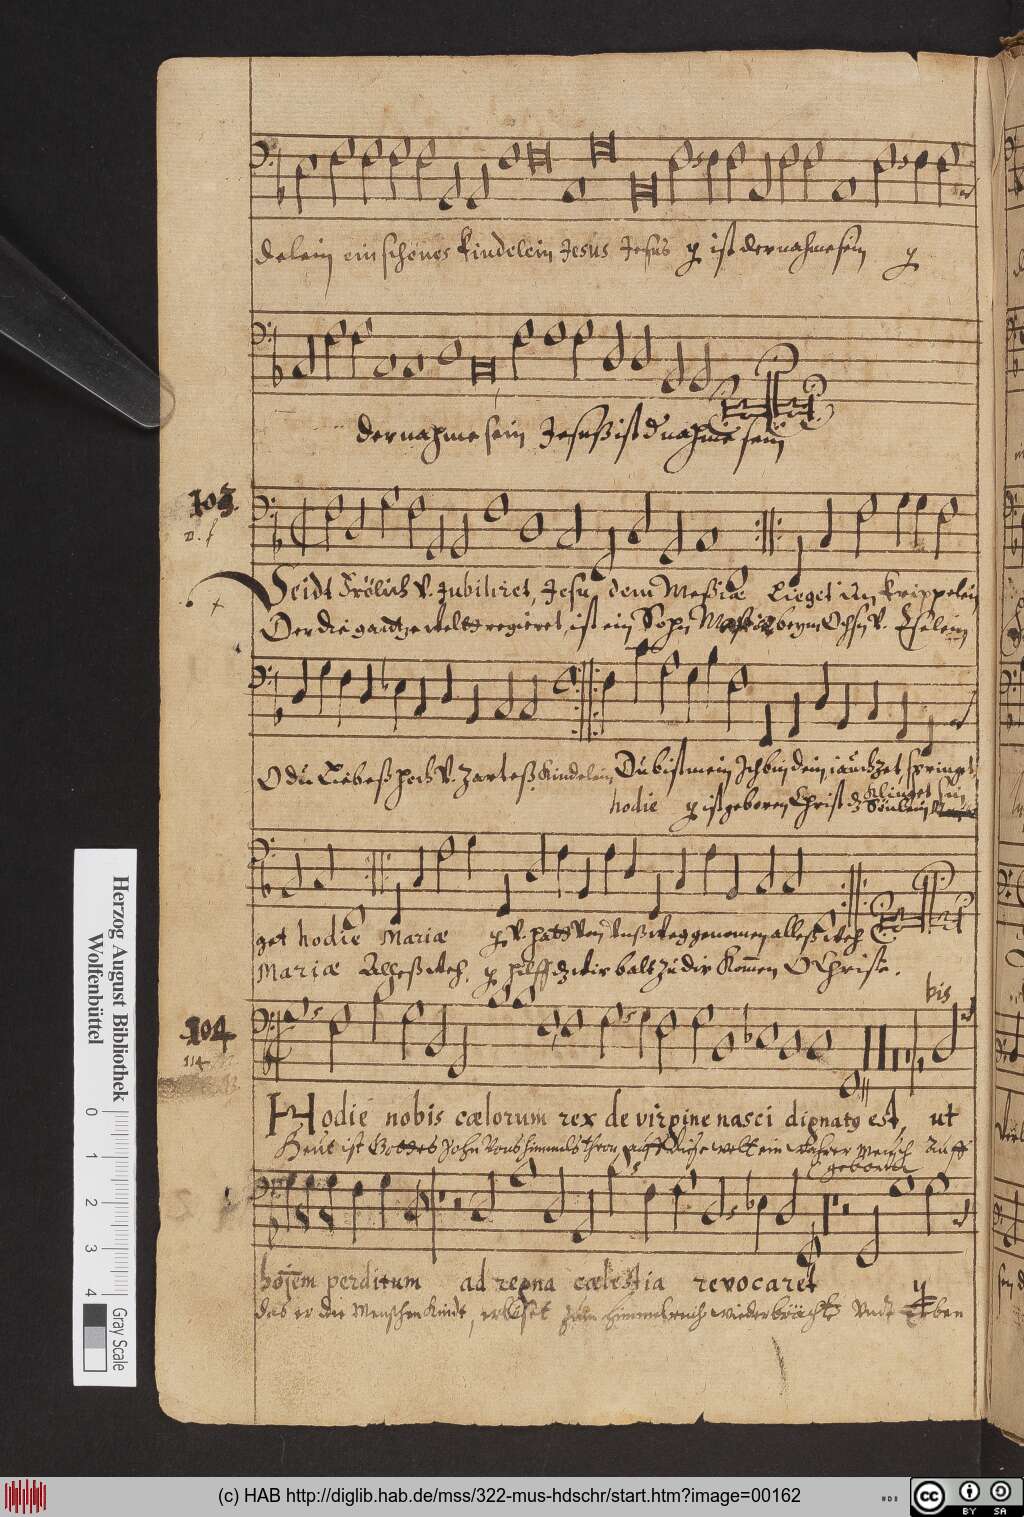 delein ein schönes kindelein Jesus Jesus ist der nahme sein
der nahme sein Jesuß ist d nahme sein
103
Seidt Frölich v. Jubiliret, Jesu dem Meßiæ Lieget im krippelein
Der die gantze weltt regieret, ist ein Sohn beym Ochsn v. Eselein
O du Liebeß hoch v. Zarteß Kindelein Du bist mein Ich bin dein, iauchzet, springet,
hodie ist geboren Christ dz Klinget Sönlein
get hodie Mariæ v. hatt von unß weg genomen alleß Weh
Mariæ Alleß Weh, hilff dz wir balt zu dir Komen O Christe.
bis
104
114
Hodie nobis cælorum rex de virgine nasci dignatg est, ut
Heut ist Gottes Sohn vons himmels thron auff diese welt ein wahrer Mensch auff
geboren
hoïem perditum ad regna cælestia revocaret
das er den Menschen Kindt, erlöset zum himmelreich wiederbrächte
Herzog August Bibliothek
Wolfenbüttel
0 1 2 3 4 Gray Scale
(c) HAB http://diglib.hab.de/mss/322-mus-hdschr/start.htm?image=00162
cc BY SA